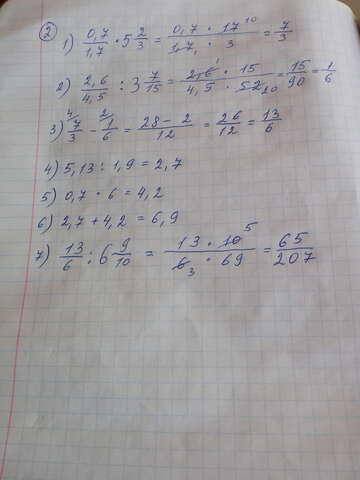 ②
1) 0,7/1,7 · 5 2/3 = 0,7 · 17 10/1,7 1 · 3 = 7/3
2) 2,6/4,5 : 3 7/15 = 2,6 1 · 15/4,5 · 52 20 = 15/90 = 1/6
3) 4 7/3 - 2 1/6 = 28 - 2/12 = 26/12 = 13/6
4) 5,13 : 1,9 = 2,7
5) 0,7 · 6 = 4,2
6) 2,7 + 4,2 = 6,9
7) 13/6 : 6 9/10 = 13 · 10 5/6 3 · 69 = 65/207